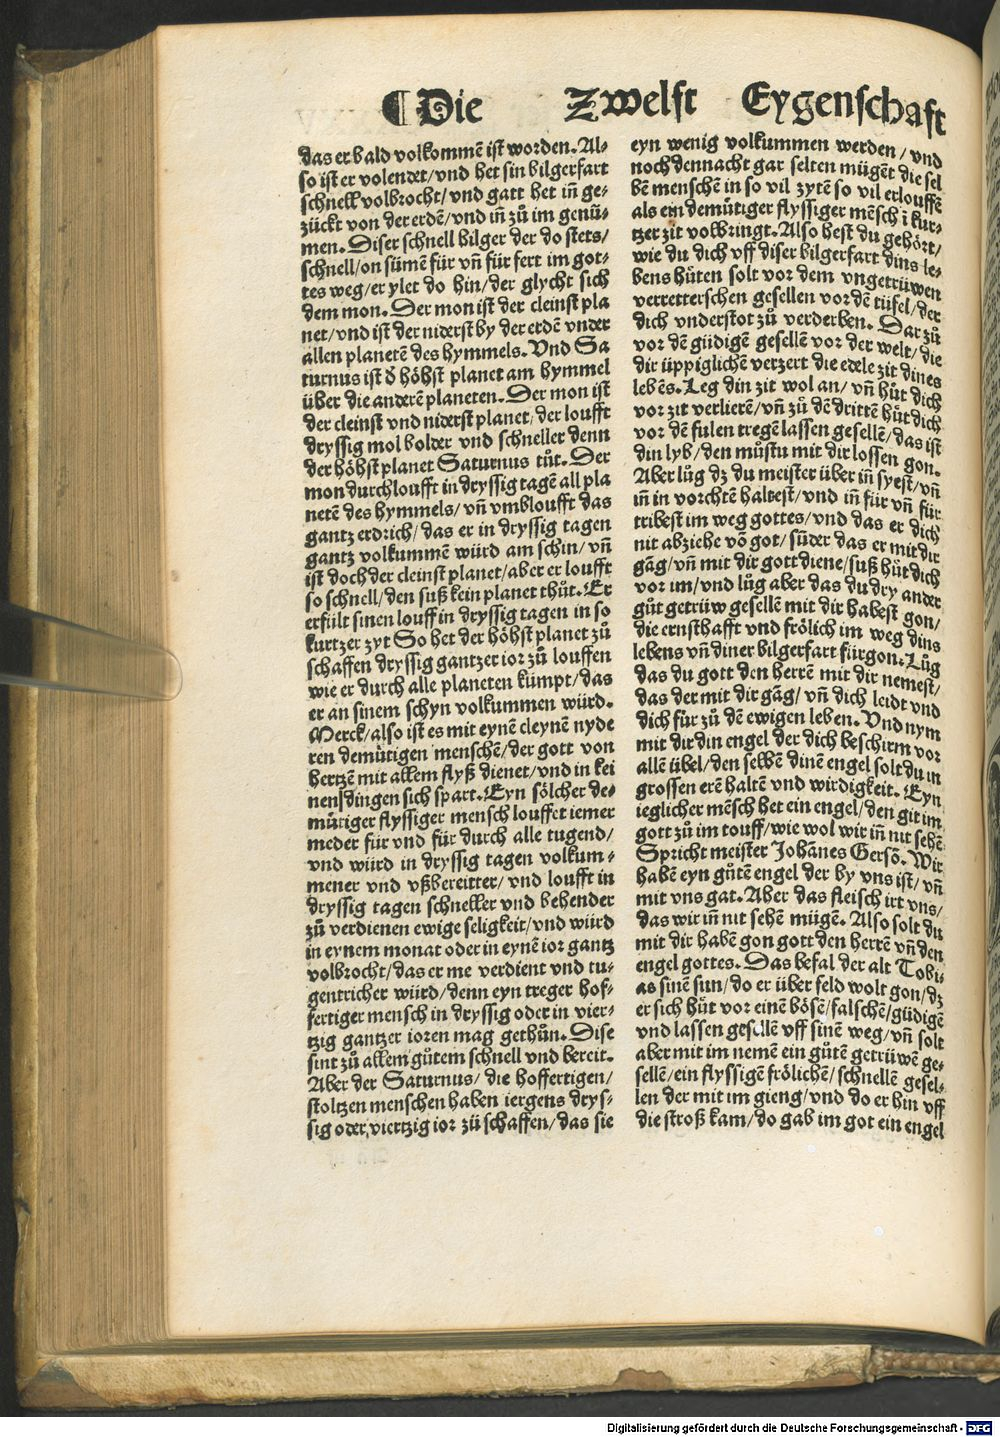 ¶ Die Zwelft Eygenschaft
das er bald volkommē ist worden. Al-
so ist er volendet/vnd het sin bilgerfart
schnell volbrocht/vnd gatt het in̄ ge-
zückt von der erdē/vnd in̄ zů im genū-
men. Diser schnell bilger der do stets/
schnell/on sümē für vn̄ für fert im got-
tes weg/er ylet do hin/der glycht sich
dem mon. Der mon ist der cleinst pla
net/vnd ist der niderst by der erdē vnder
allen planetē des hymmels. Vnd Sa
turnus ist d̄ höhst planet am hymmel
über die anderē planeten. Der mon ist
der cleinst vnd niderst planet/der loufft
dryssig mol bolder vnd schneller denn
der höhst planet Saturnus tůt. Der
mon durchloufft in dryssig tagē all pla
netē des hymmels/vn̄ vmbloufft das
gantz erdrich/das er in dryssig tagen
gantz volkummē würd am schin/vn̄
ist doch der cleinst planet/aber er loufft
so schnell/den suß kein planet thůt. Er
erfült sinen louff in dryssig tagen in so
kurtzer zyt So het der höhst planet zů
schaffen dryssig gantzer ior zů louffen
wie er durch alle planeten kümpt/das
er an sinem schyn volkummen würd.
Merck/also ist es mit eynē cleynē nyde
ren demütigen menschē/der gott von
hertzē mit allem flyß dienet/vnd in kei
nen dingen sich spart. Eyn sölcher de-
mütiger flyssiger mensch louffet iemer
meder für vnd für durch alle tugend/
vnd würd in dryssig tagen volkum-
mener vnd vßbereitter/vnd loufft in
dryssig tagen schneller vnd behender
zů verdienen ewige seligkeit/vnd würd
in eynem monat oder in eynē ior gantz
volbrocht/das er me verdient vnd tu-
gentricher würd/denn eyn treger hof-
fertiger mensch in dryssig oder in vier-
tzig gantzer ioren mag gethůn. Dise
sint zů allem gůtem schnell vnd bereit.
Aber der Saturnus/die hoffertigen/
stoltzen menschen haben iergens drys-
sig oder viertzig ior zů schaffen/das sie
eyn wenig volkummen werden/vnd
noch dennacht gar selten mügēt die sel
bē menschē in so vil zytē so vil erlouffē
als ein demütiger flyssiger mēsch ī kur-
tzer zit volbringt. Also hest du gehört/
wie du dich vff diser bilgerfart dins le-
bens hüten solt vor dem vngetrüwen
verretterschen gesellen vor dē tüfel/der
dich vnderstot zů verderben. Dar zů
vor dē güdigē gesellē vor der welt/die
dir üppiglichē verzert die edele zit dines
lebēs. Leg din zit wol an/vn̄ hůt dich
vor zit verlierē/vn̄ zů dē drittē hůt dich
vor dē fulen tregē lassen gesellē/das ist
din lyb/den můstu mit dir lossen gon.
Aber lůg dz du meister über in̄ syest/vn̄
in̄ in vorchtē haltest/vnd in̄ für vn̄ für
tribest im weg gottes/vnd das er dich
nit abziehe vō got/sūder das er mit dir
gāg/vn̄ mit dir gott diene/suß hůt dich
vor im/vnd lůg aber das du dry ander
gůt getrüw gesellē mit dir habest gon/
die ernsthafft vnd frölich im weg dins
lebens vn̄ diner bilgerfart fürgon. Lůg
das du gott den herrē mit dir nemest/
das der mit dir gāg/vn̄ dich leidt vnd
dich für zů dē ewigen leben. Vnd nym
mit dir din engel der dich beschirm vor
allē übel/den selbē dinē engel solt du in
grossen erē haltē vnd wirdigkeit. Eyn
ieglicher mēsch het ein engel/den git im
gott zů im touff/wie wol wir in̄ nit sehē
Spricht meister Johānes Gersō. Wir
habē eyn gůtē engel der by vns ist/vn̄
mit vns gat. Aber das fleisch irt vns/
das wir in̄ nit sehē mügē. Also solt du
mit dir habē gon gott den herrē vn̄ den
engel gottes. Das befal der alt Tobi-
as sinē sun/do er über feld wolt gon/dz
er sich hůt vor einē bösē/falschē/güdigē
vnd lassen gesellē vff sinē weg/vn̄ solt
aber mit im nemē ein gůtē getrüwē ge-
sellē/ein flyssigē frölichē/schnellē gesel-
len der mit im gieng/vnd do er hin vff
die stroß kam/do gab im got ein engel
Digitalisierung gefördert durch die Deutsche Forschungsgemeinschaft - DFG